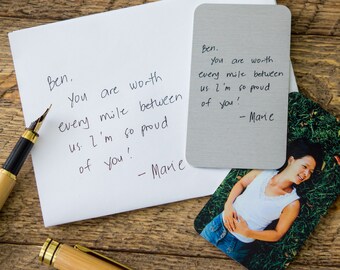 Ben,
you are worth
every mile between
us I'm so proud
of you!
- Marie
Ben,
you are worth
every mile between
us I'm so proud
of you!
- Marie